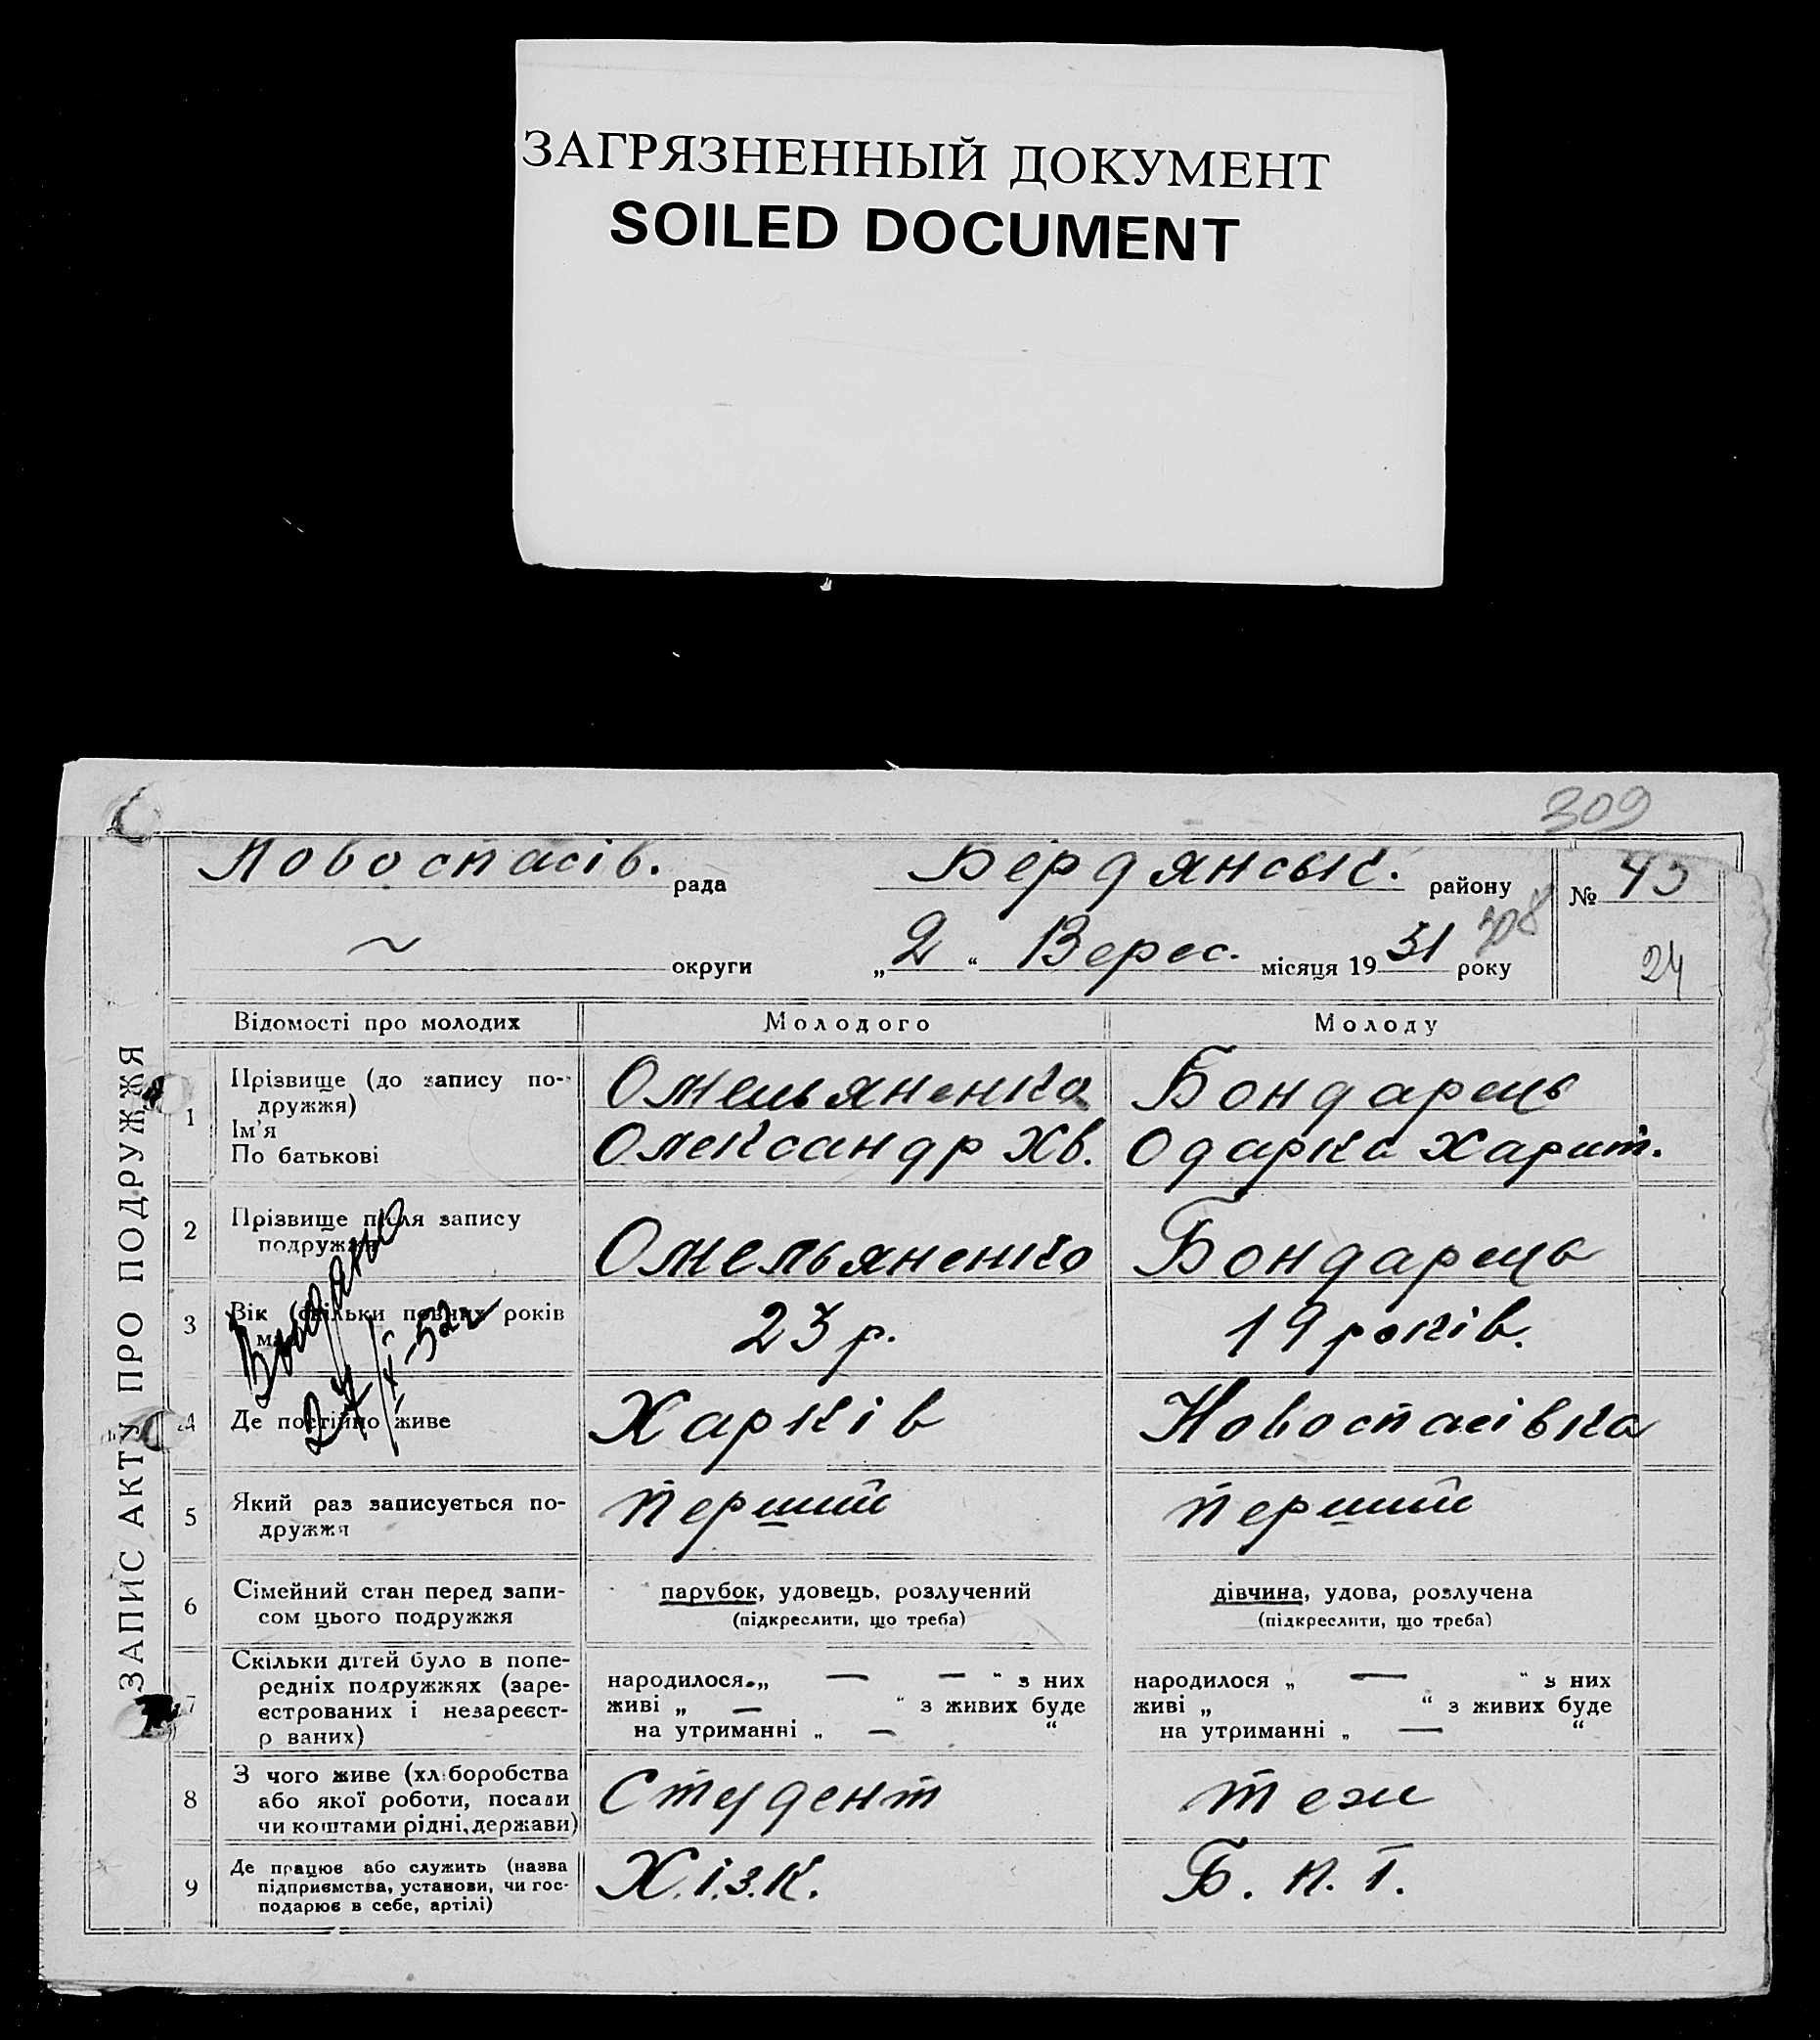 ЗАГРЯЗНЕННЫЙ ДОКУМЕНТ
SOILED DOCUMENT
309
Новоспасів. рада Бердянськ. району № 45
~ округи „2“ Верес. місяця 1931 року 308
24
ЗАПИС АКТУ ПРО ПОДРУЖЖЯ
Відомості про молодих Молодого Молоду
1 Прізвище (до запису по-
дружжя)
Ім'я
По батькові
Омельяненко
Олександр Хв.
Бондарець
Одарка Харит.
2 Прізвище після запису
подружжя
Омельяненко
Бондарець
3 Вік скільки повних років
має
23 р.
19 років.
Выдано
27/X-52г
4 Де постійно живе Харків Новоспасівка
5 Який раз записується по-
дружжя
перший
перший
6 Сімейний стан перед запи-
сом цього подружжя
парубок, удовець, розлучений
(підкреслити, що треба)
дівчина, удова, розлучена
(підкреслити, що треба)
7 Скільки дітей було в попе-
редніх подружжях (заре-
єстрованих і незареєст-
р ваних)
народилося „ — — “ з них
живі „ — “ з живих буде
на утриманні „ — “
народилося „ — “ з них
живі „ “ з живих буде
на утриманні „ — “
8 З чого живе (хліборобства
або якої роботи, посади
чи коштами рідні, держави)
Студент
теж
9 Де працює або служить (назва
підприємства, установи, чи гос-
подарює в себе, артілі)
Х.і.з.К.
Б. п. Т.